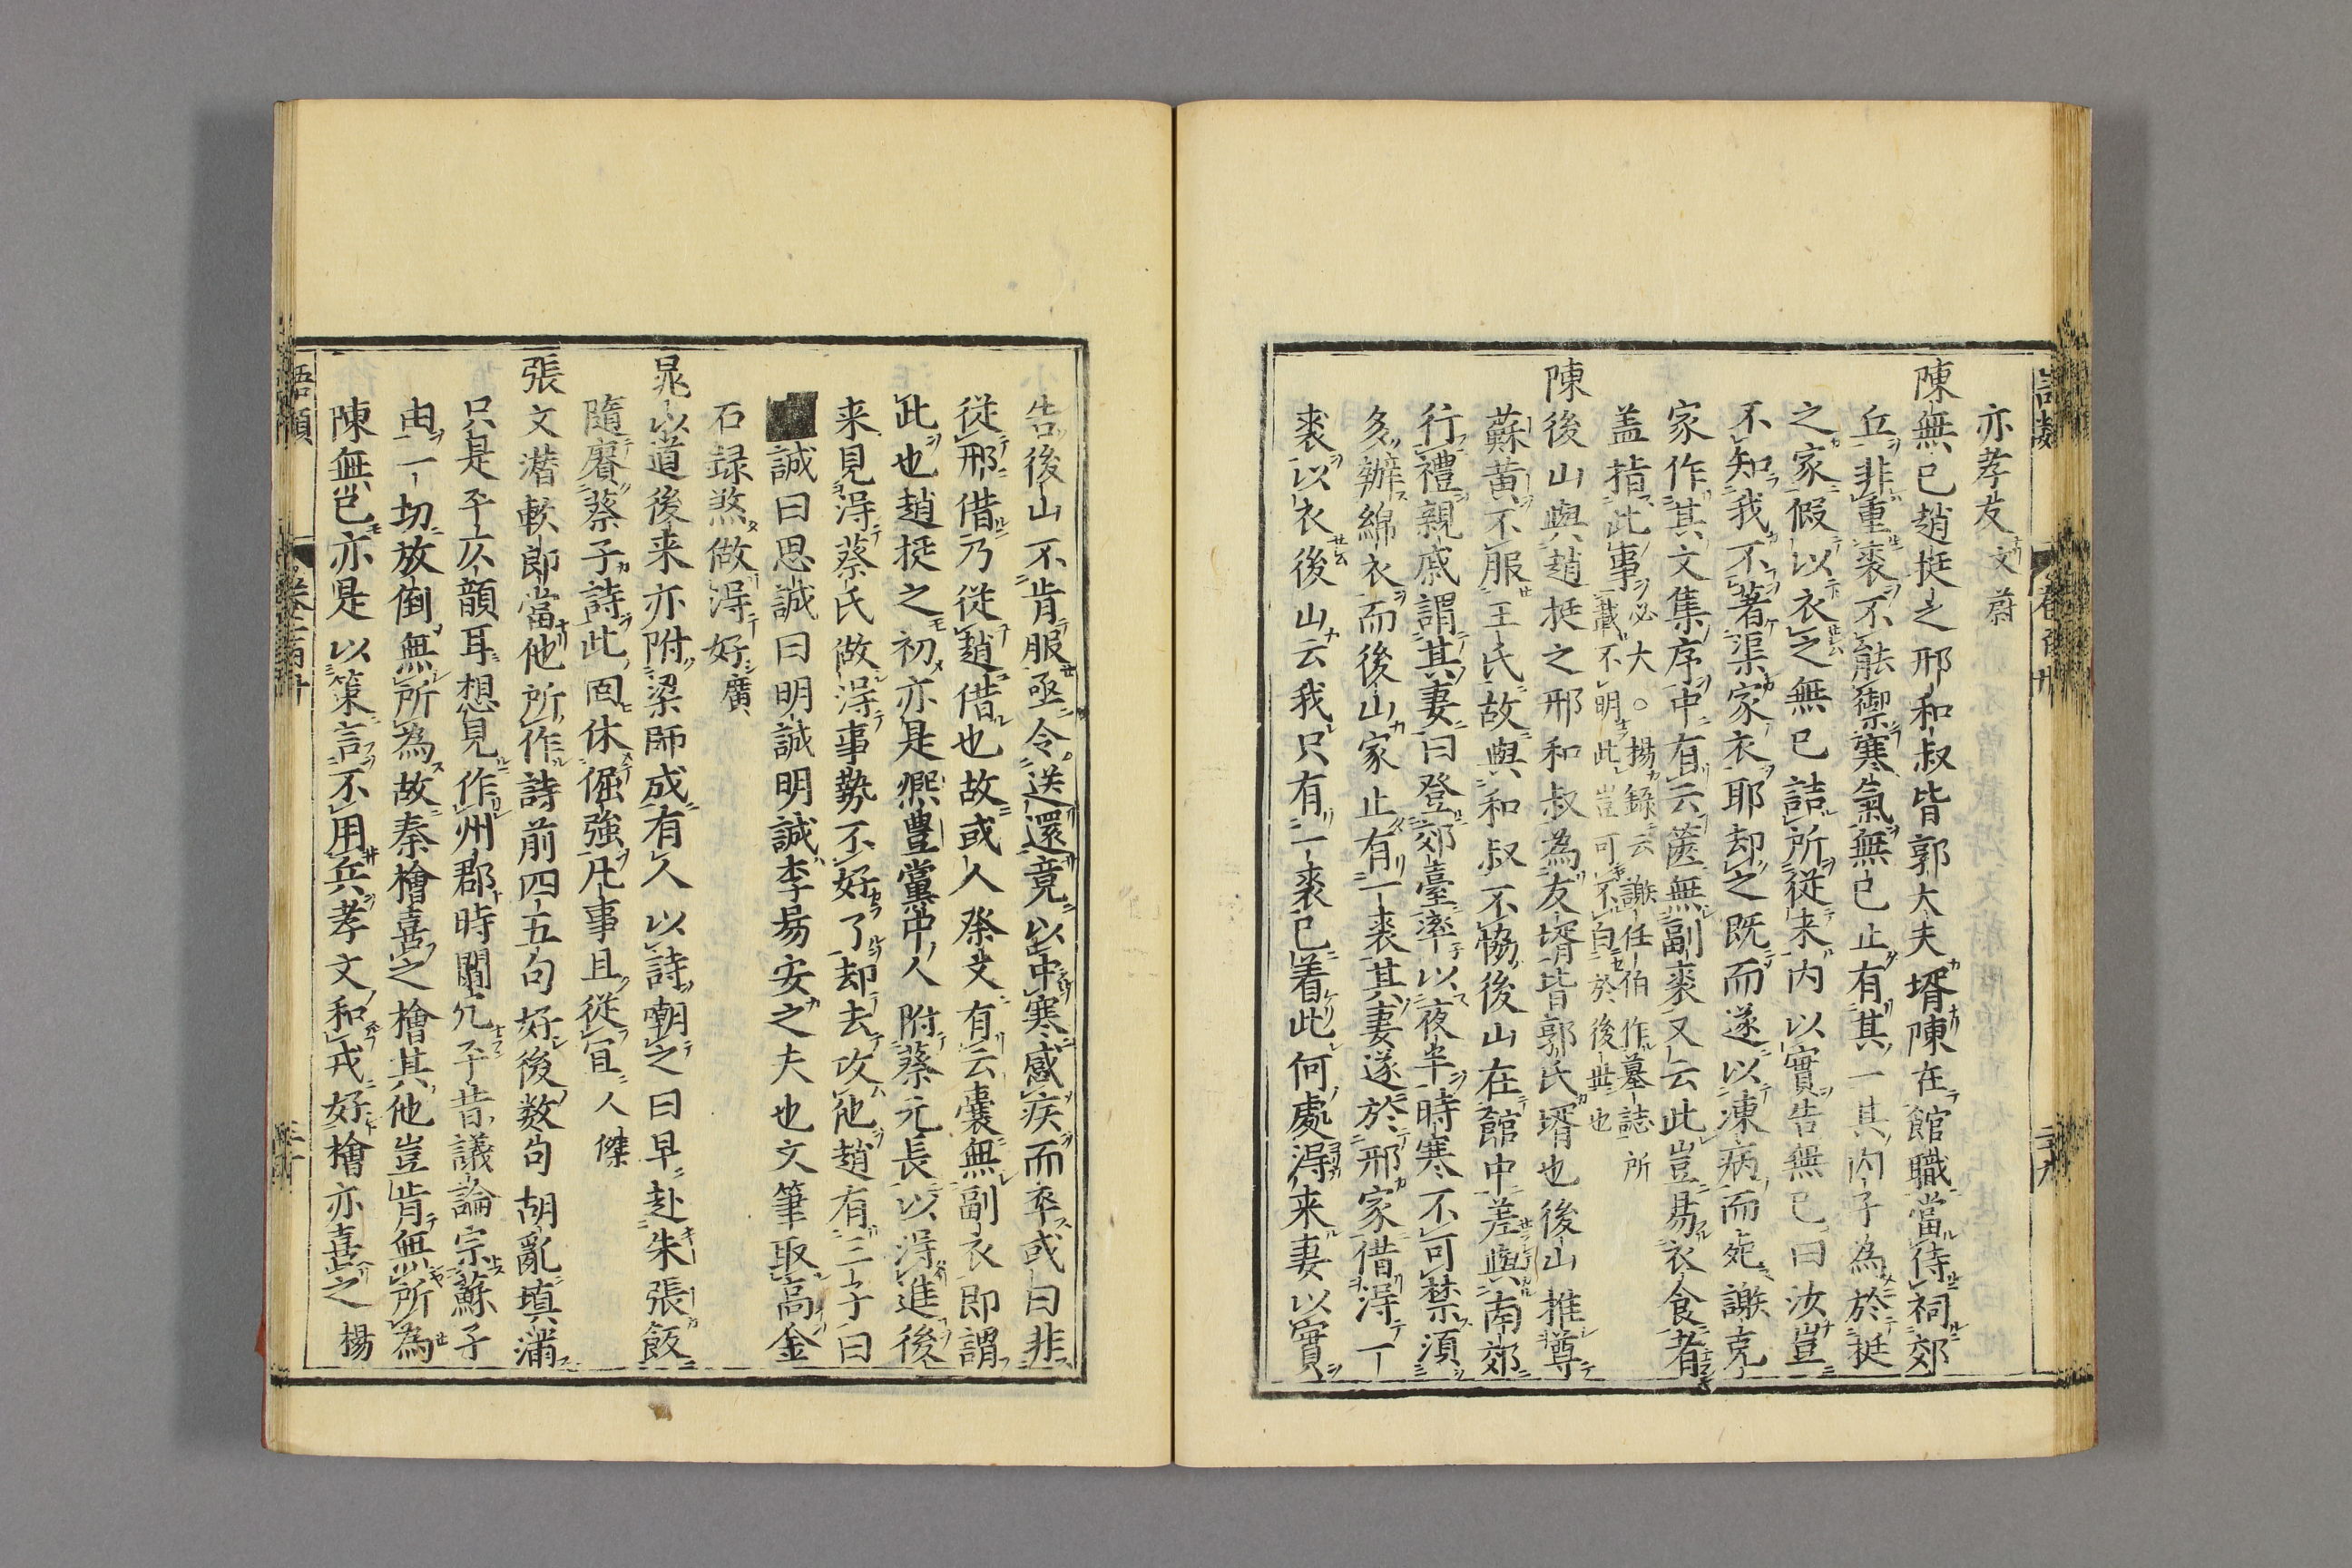 亦孝友文蔚
陳無已趙挺之邢和叔皆郭大夫壻陳在館職當侍祠郊
丘非重裘不能禦寒氣無已止有其一其内子為於挺
之家假以衣之無已詰所従来内以實告無已曰汝豈
不知我不著渠家衣耶却之既而遂以凍病而死謝克
家作其文集序中有云篋無副裘又云此豈易衣食者
盖指此事必大○揚録云謝任伯作墓誌所
藏不明此豈可不白於後世也
陳後山與趙挺之邢和叔為友壻皆郭氏壻也後山推尊
蘇黄不服王氏故與和叔不恊後山在館中差與南郊
行禮親戚謂其妻曰登郊臺率以夜半時寒不可禁須
多辦綿衣而後山家止有一裘其妻遂於邢家借得一
裘以衣後山云我只有一裘已着此何處得来妻以實
告後山不肯服亟令送還竟以中寒感疾而卒或曰非
従邢借乃従趙借也故或人祭文有云嚢無副衣即謂
此也趙挺之初亦是熈豊黨中人附蔡元長以得進後
来見得蔡氏做得事勢不好了却去攻他趙有三子曰
誠曰思誠曰明誠明誠李易安之夫也文筆取高金
石録煞做得好廣
晁以道後来亦附梁師成有人以詩嘲之曰早赴朱張飯
隨賡蔡子詩此囬休倔強凡事且従冝人傑
張文潜軟郎當他所作詩前四五句好後数句胡亂填滿
只是平仄韻耳想見作州郡時闒冗平昔議論宗蘇子
由一切放倒無所為故秦檜喜之檜其他豈肯無所為
陳無已亦是以策言不用兵孝文和戎好檜亦喜之揚